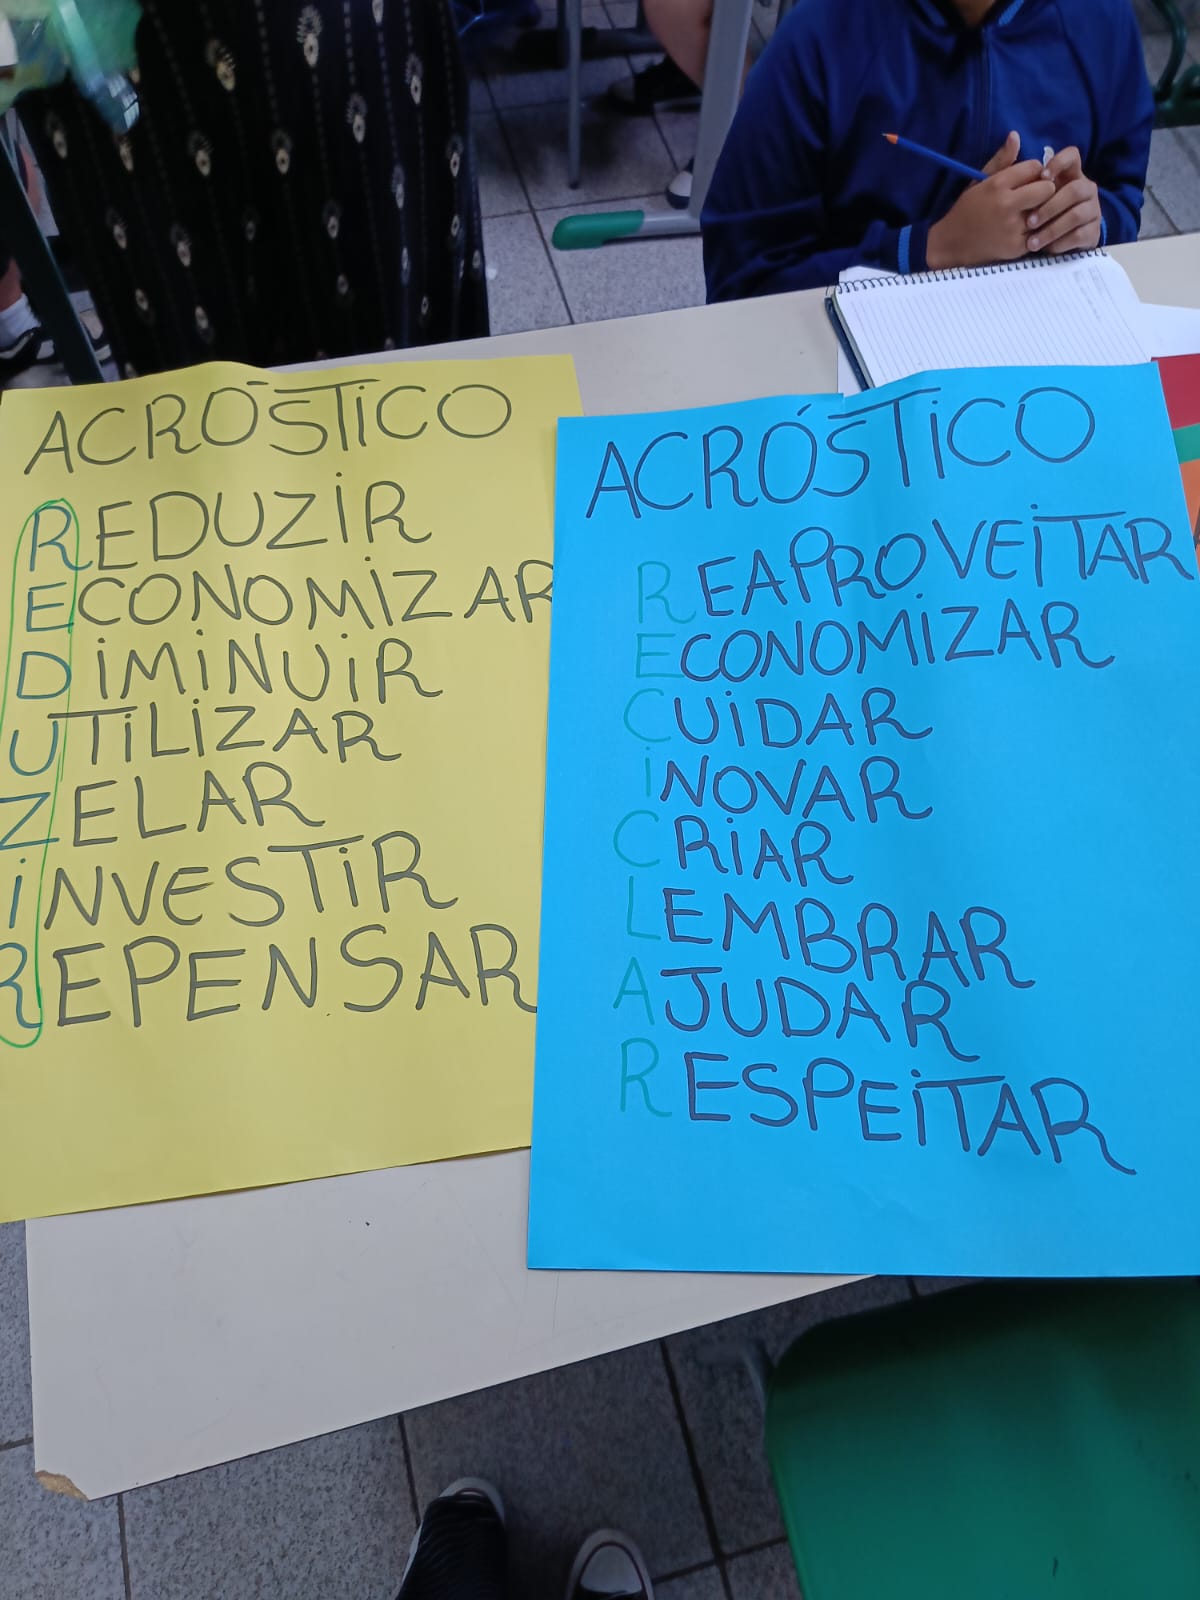 ACRÓSTICO
REDUZIR
ECONOMIZAR
DIMINUIR
UTILIZAR
ZELAR
INVESTIR
REPENSAR
ACRÓSTICO
REAPROVEITAR
ECONOMIZAR
CUIDAR
INOVAR
CRIAR
LEMBRAR
AJUDAR
RESPEITAR